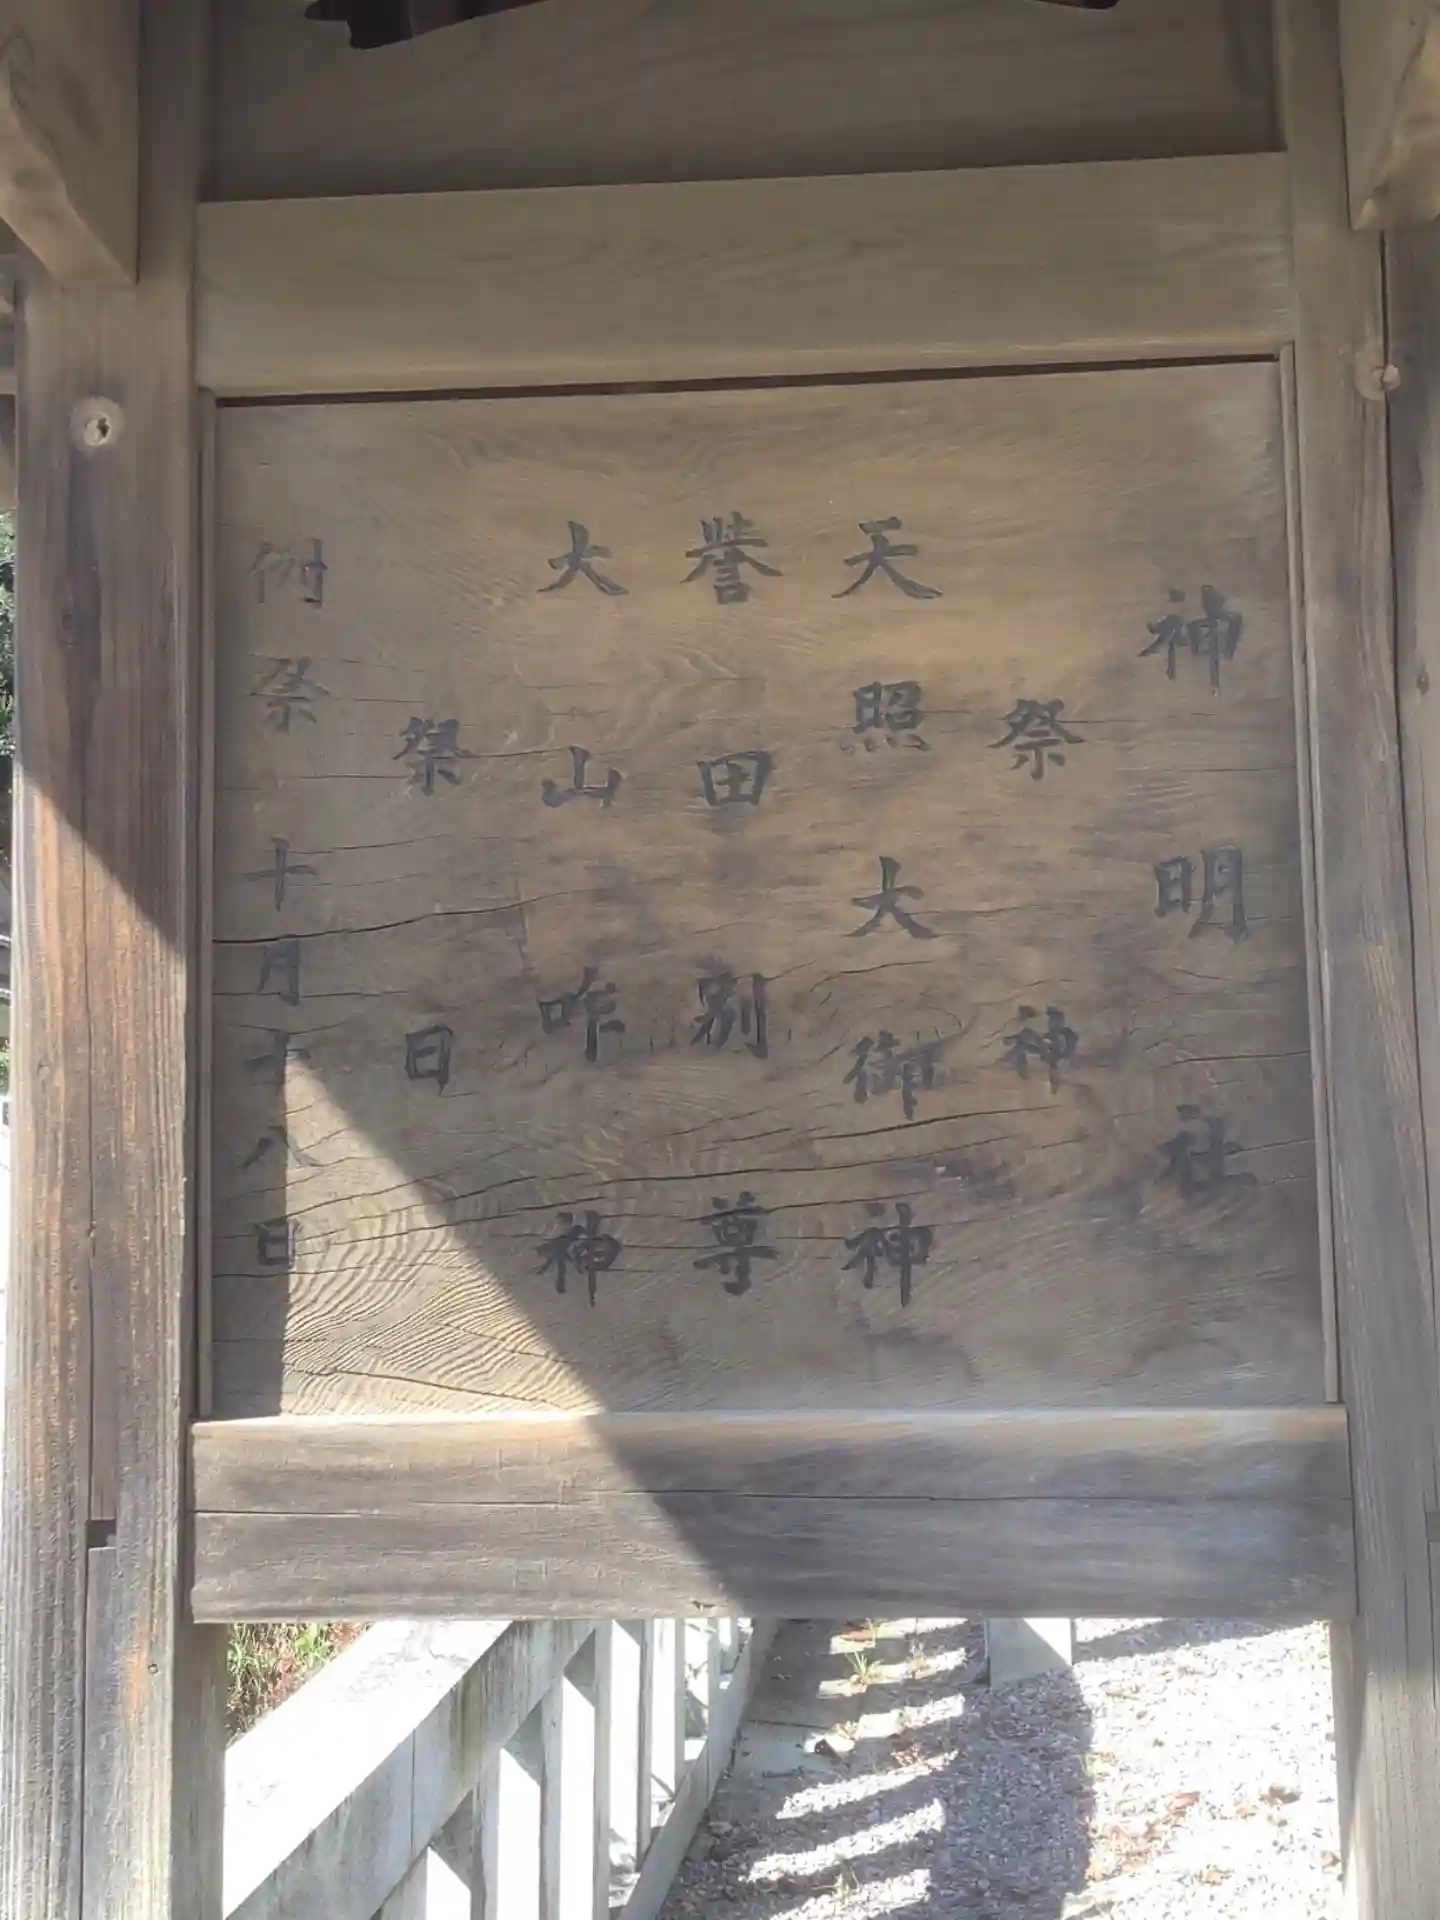 神明社
祭神
天照大御神
誉田別尊
大山咋神
祭日
例祭 十月十八日